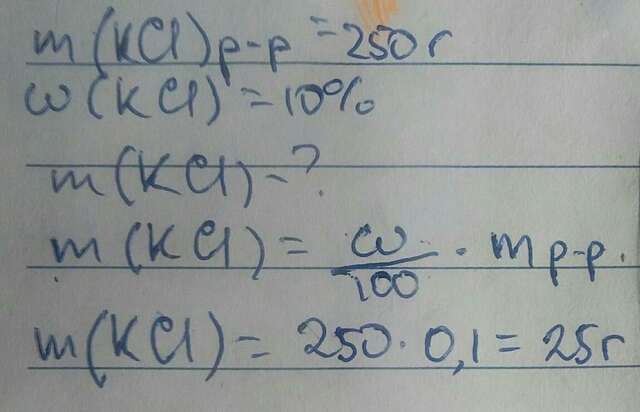 m(KCl)р-р = 250г
ω(KCl) = 10%
m(KCl) - ?
m(KCl) = ω/100 · m р-р.
m(KCl) = 250 · 0,1 = 25г